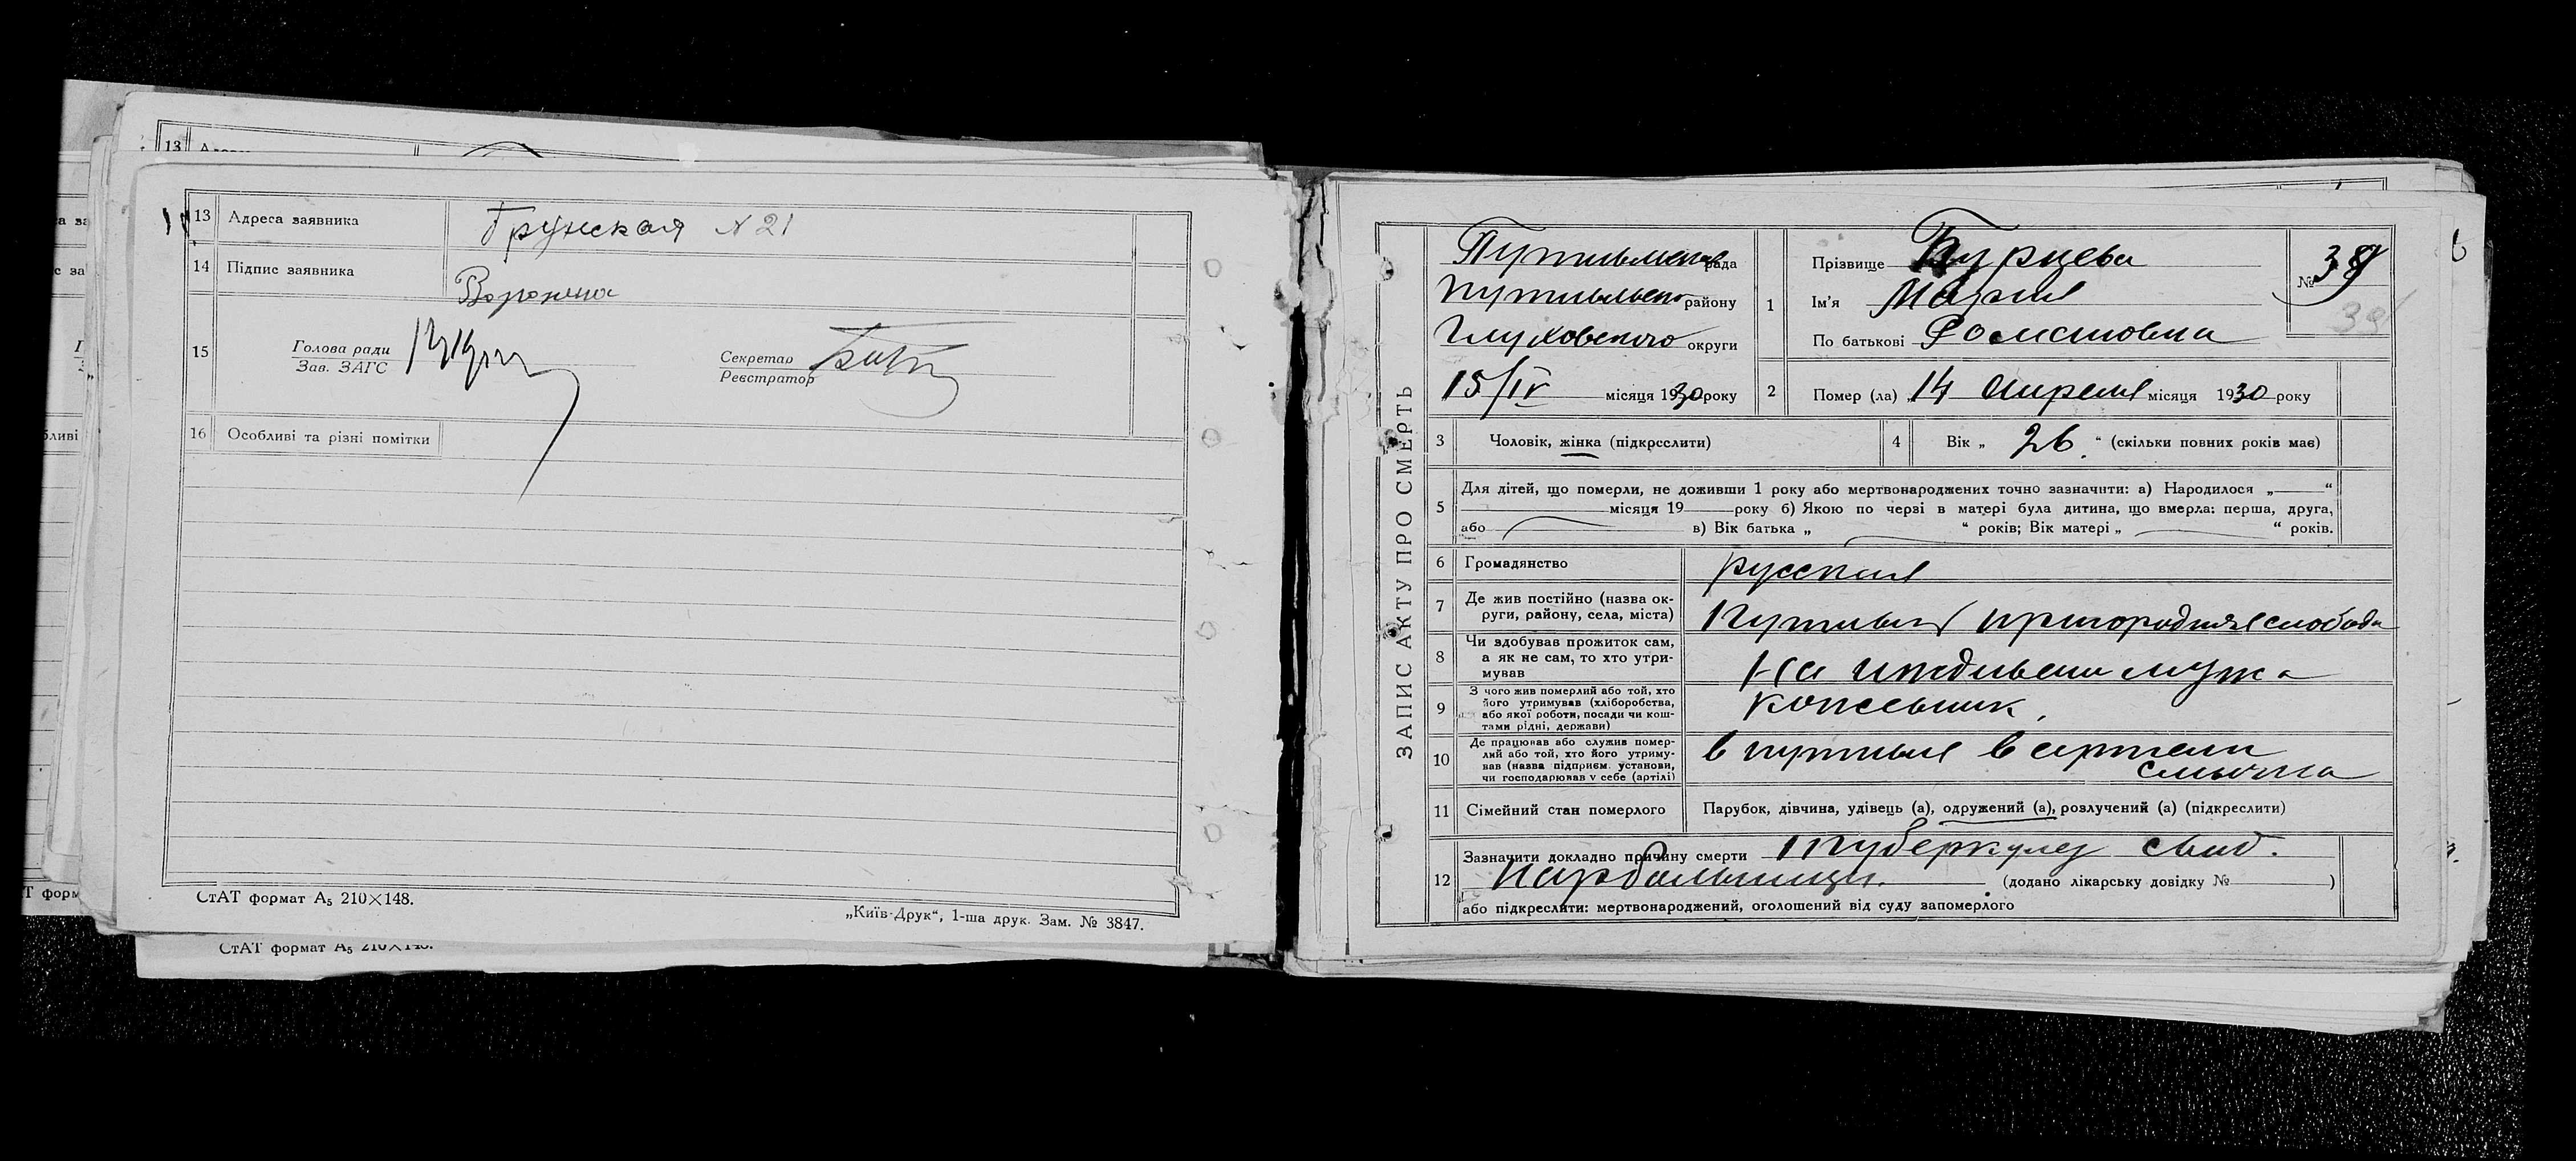 13 Адреса заявника Грунская № 21
14 Підпис заявника Воронина
15 Голова ради
Зав. ЗАГС
Секретар
Реєстратор
16 Особливі та різні помітки
СтАТ формат А₅ 210×148.
„Київ-Друк“, 1-ша друк. Зам. № 3847.
СтАТ формат А₅ 210×148.
ЗАПИС АКТУ ПРО СМЕРТЬ
Путивльська рада
Путивльского району
Глуховского округи
15/IV місяця 1930 року
1 Прізвище Бурцева
Ім'я Мария
По батькові Романовна
№ 38
39
2 Помер (ла) „14 апреля місяця 1930 року
3 Чоловік, жінка (підкреслити)
4 Вік „ 26 “ (скільки повних років має)
5 Для дітей, що померли, не доживши 1 року або мертвонароджених точно зазначити: а) Народилося „ “
місяця 19 року б) Якою по черзі в матері була дитина, що вмерла: перша, друга,
або в) Вік батька „ “ років; Вік матері „ “ років.
6 Громадянство русская
7 Де жив постійно (назва ок-
руги, району, села, міста) Путивль пригородняя слобода
8 Чи здобував прожиток сам,
а як не сам, то хто утри-
мував На иждивени мужа
9 З чого жив померлий або той, хто
його утримував (хліборобства,
або якої роботи, посади чи кош-
тами рідні, держави) кожевник
10 Де працював або служив помер-
лий або той, хто його утриму-
вав (назва підприєм. установи,
чи господарював у себе (артілі) в путивле в артели
смычка
11 Сімейний стан померлого Парубок, дівчина, удівець (а), одружений (а), розлучений (а) (підкреслити)
12 Зазначити докладно причину смерти Туберкулез свид.
Нарбольницы. (додано лікарську довідку № )
або підкреслити: мертвонароджений, оголошений від суду запомерлого